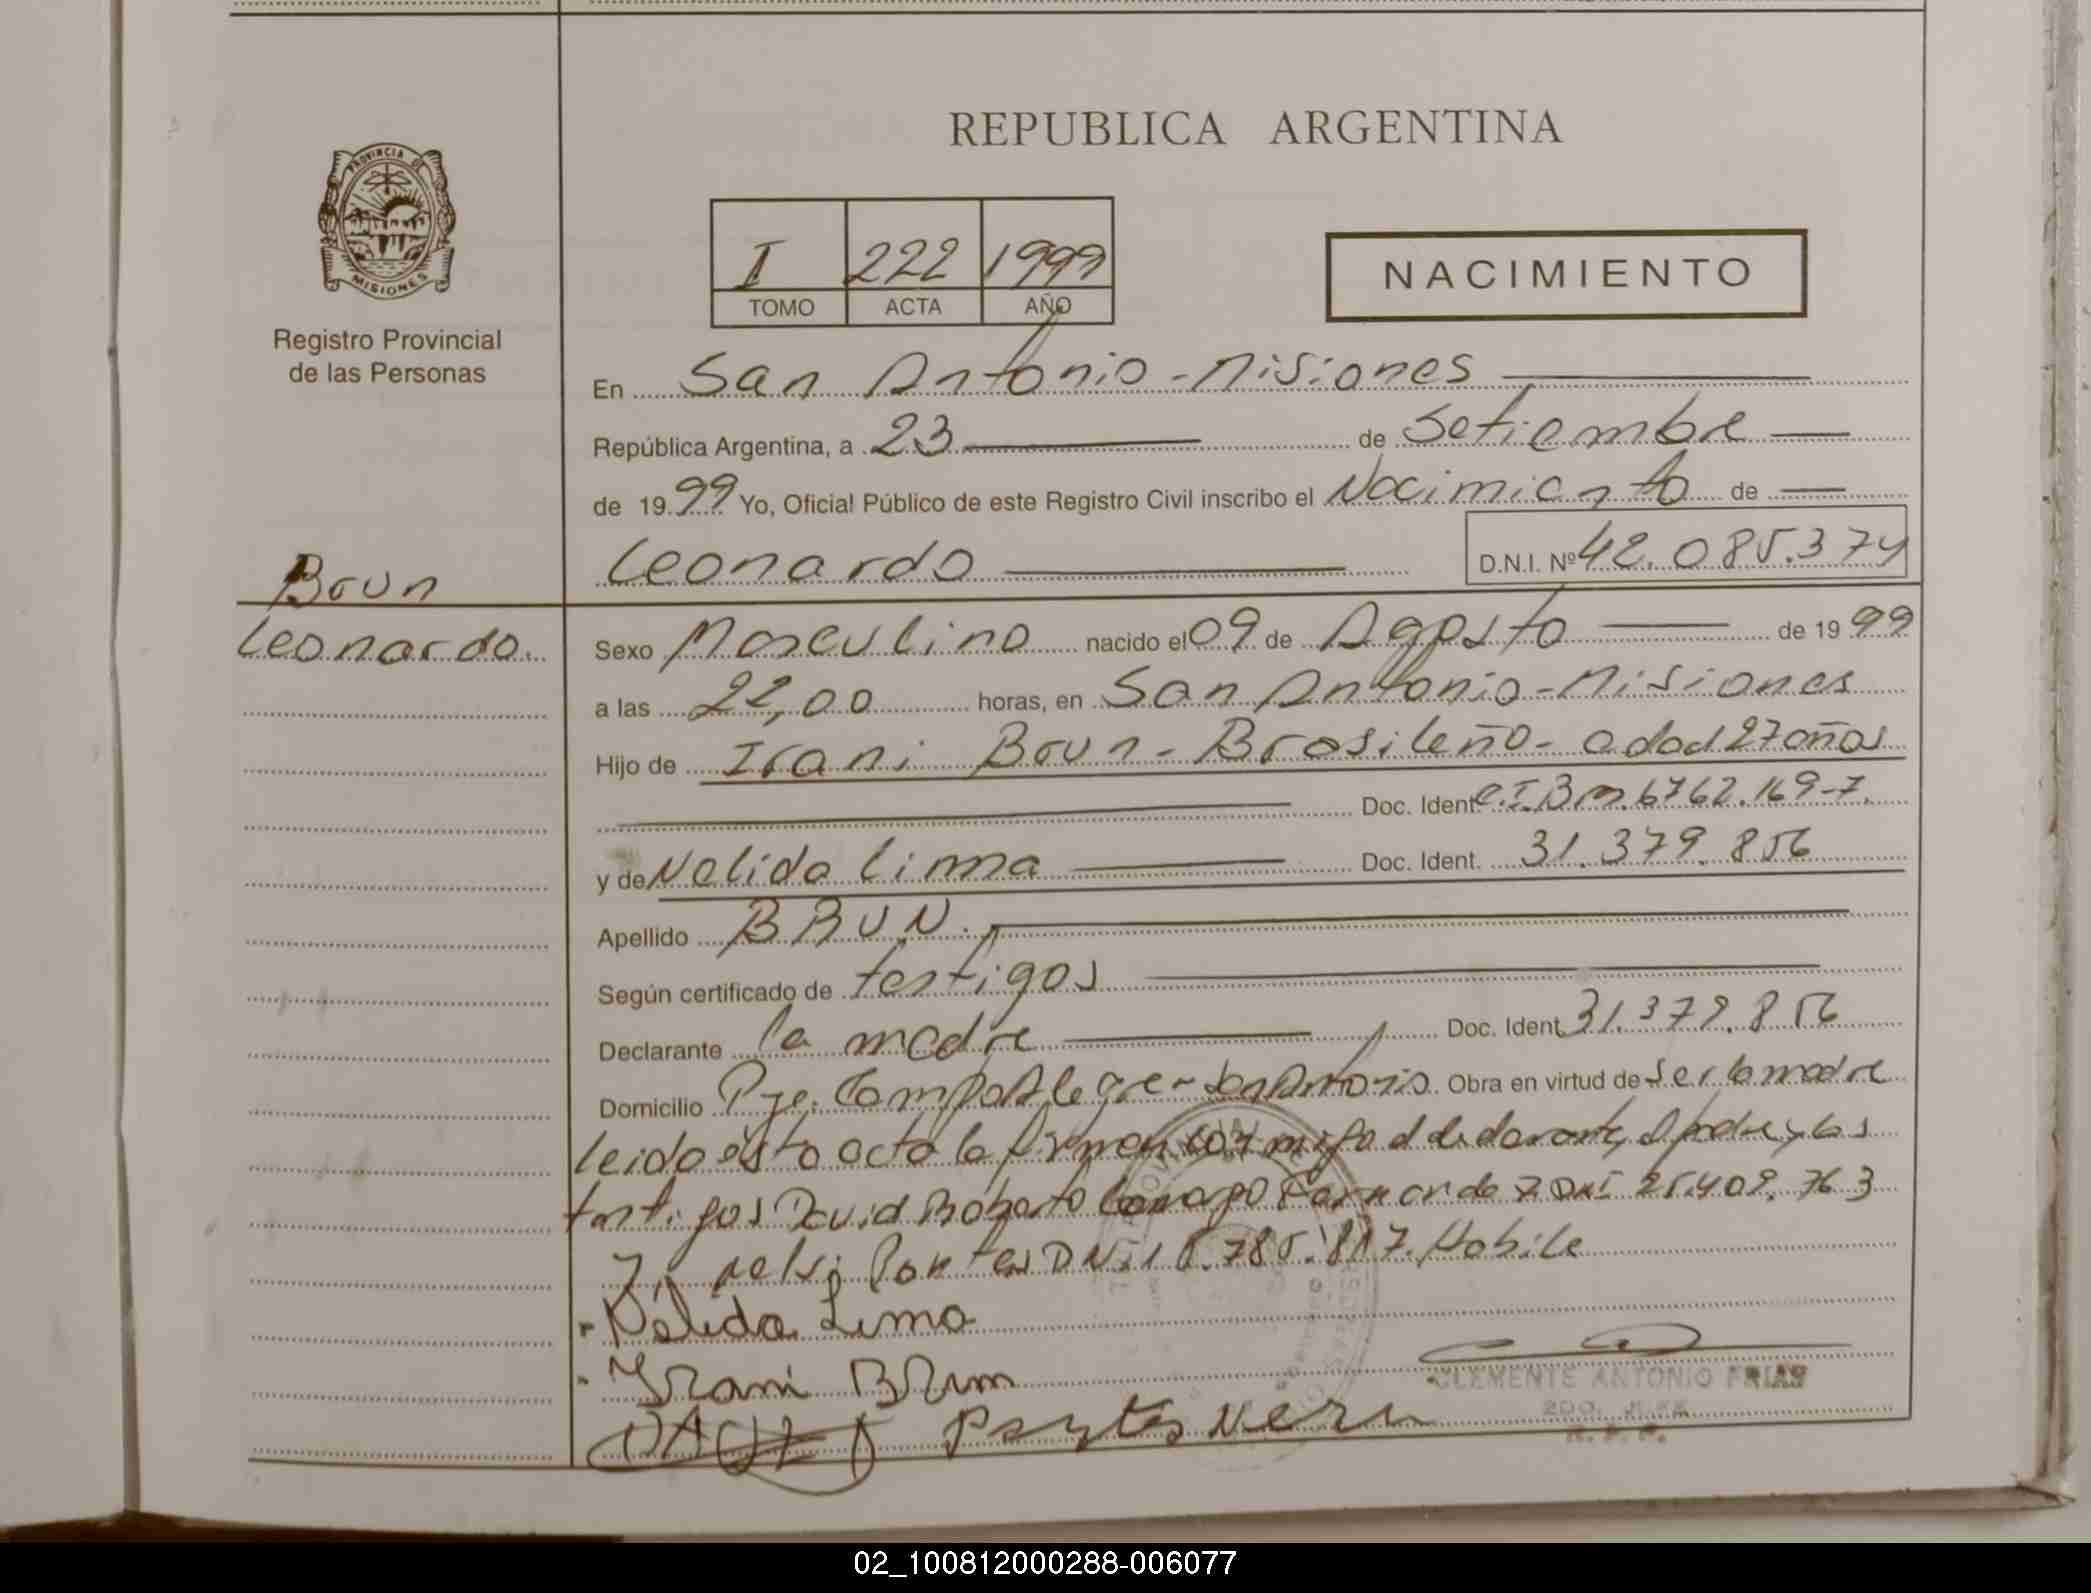 REPUBLICA ARGENTINA
PROVINCIA DE
MISIONES
Registro Provincial
de las Personas
I 222 1999
TOMO ACTA AÑO
NACIMIENTO
En San Antonio - Misiones
República Argentina, a 23 de Setiembre
de 1999 Yo, Oficial Público de este Registro Civil inscribo el Nacimiento de
Leonardo D.N.I. Nº 42.085.374
Brun
Leonardo.
Sexo Masculino nacido el 09 de Agosto de 1999
a las 22,00 horas, en San Antonio - Misiones
Hijo de Irani Brun - Brasileño - edad 27 años
Doc. Ident. C.I.B.M. 6762.169-7.
y de Nelida Lima Doc. Ident. 31.379.856
Apellido BRUN.
Según certificado de testigos
Declarante la madre Doc. Ident. 31.379.856
Domicilio Pje. Campo Alegre - San Antonio. Obra en virtud de ser la madre
leida esta acta la firman conmigo el declarante, el padre y los
testigos David Roberto Fernandez DNI 25.409.763
y Nelsi Pontes DNI Habile
Nélida Lima
Irani Brum
CLEMENTE ANTONIO FRIAS
02_100812000288-006077